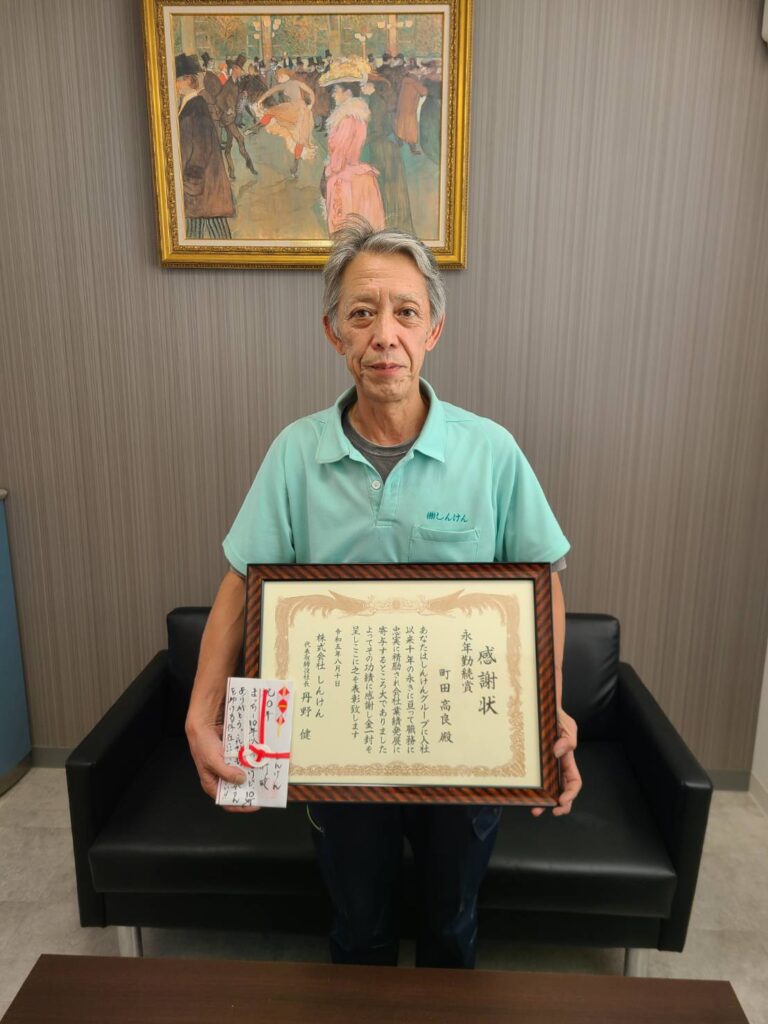 ㈱しんけん
感謝状
永年勤続賞
町田高良殿
あなたはしんけんグループに入社
以来十年の永きに亘って職務に
忠実に精励され会社業績発展に
寄与するところ大でありました
よってその功績に感謝し金一封を
呈しここに之を表彰致します
令和五年八月十日
株式会社しんけん
代表取締役社長 丹野健
んけん
10年